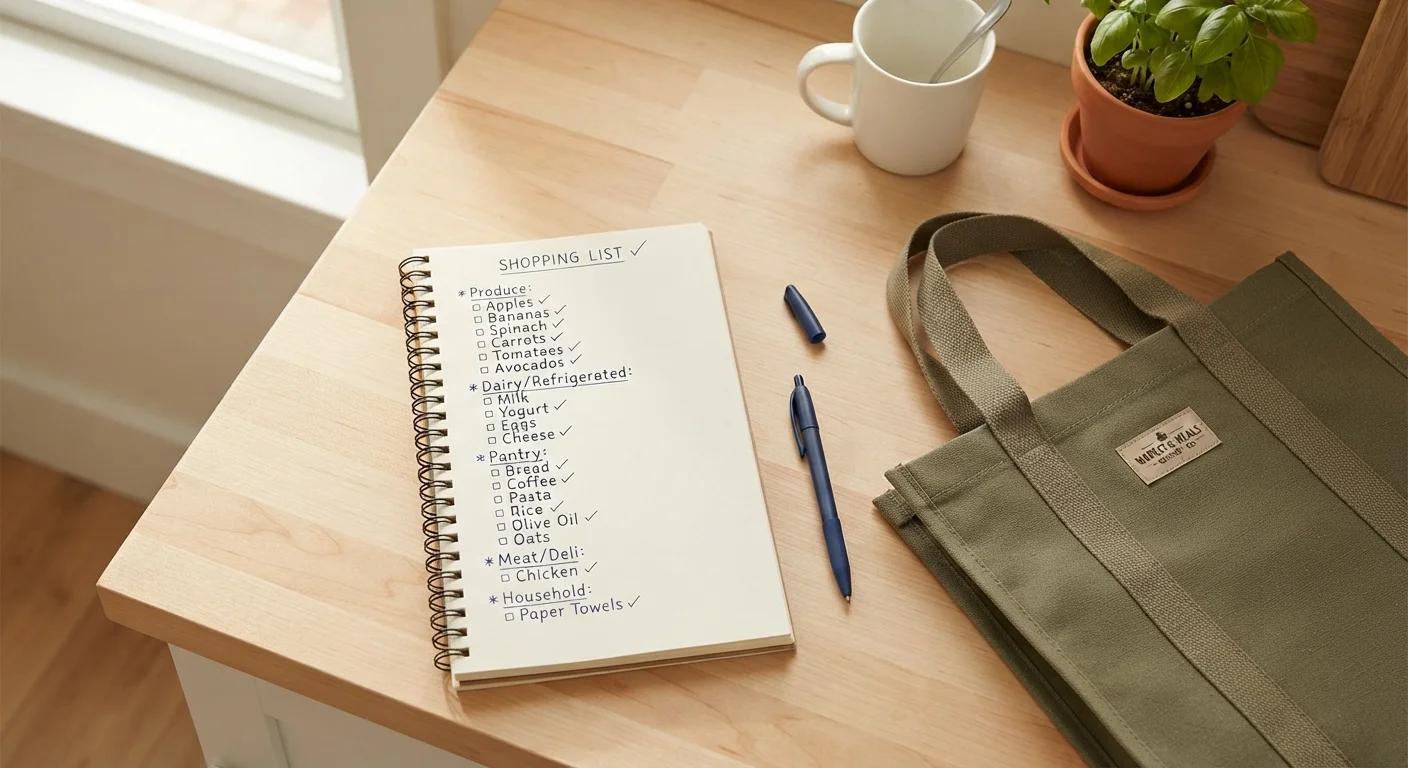 SHOPPING LIST ✓
* Produce:
☐ Apples ✓
☐ Bananas ✓
☐ Spinach ✓
☐ Carrots ✓
☐ Tomatees ✓
☐ Avocados ✓
* Dairy/Refrigerated:
☐ Milk
☐ Yogurt ✓
☐ Eggs
☐ Cheese ✓
* Pantry:
☐ Bread ✓
☐ Coffee ✓
☐ Pasta
☐ Rice ✓
☐ Olive Oil ✓
☐ Oats
* Meat/Deli:
☐ Chicken ✓
* Household:
☐ Paper Towels ✓
& MEALS